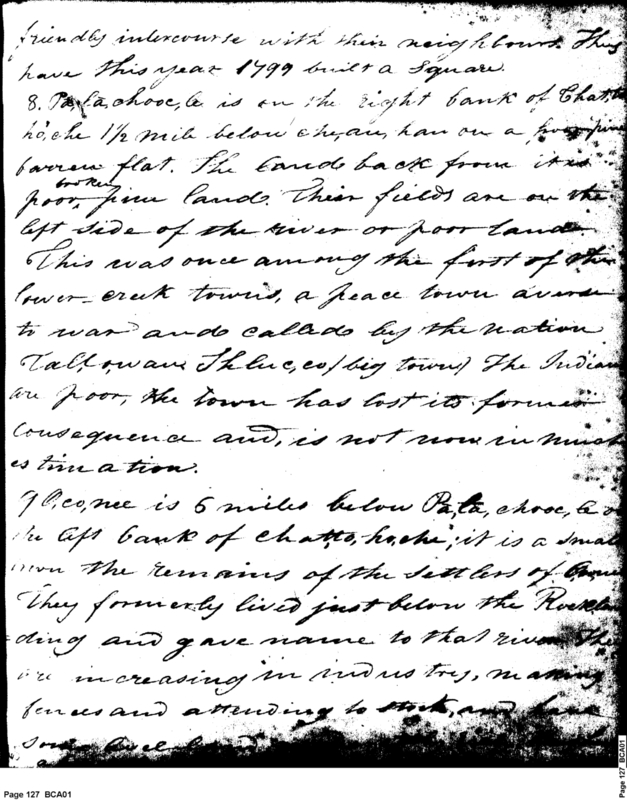 friendly intercourse with their neighbours. They
have this year 1799 built a Square
8. Pa,la,chooc,le is on the right bank of Chatto
ho,che 1½ mile below che,au,hau on a poor pine
barren flat. The land back from it is
poor, broken pine land. Their fields are on the
left side of the river or poor land
This was once among the first of the
lower creek towns, a peace town averse
to war and called by the nation
Tal,lowau Thluc,co (big town) The Indians
are poor, the town has lost its former
consequence and, is not now in much
estimation.
9 O,co,nee is 6 miles below Pa,la,chooc,le on
the left bank of Chatto,ho,che; it is a small
town the remains of the settlers of
They formerly lived just below the Rock lan
ding and gave name to that river They
are increasing in industry, making
fences and attending to stock, and have
some level land
Page 127 BCA01
Page 127 BCA01